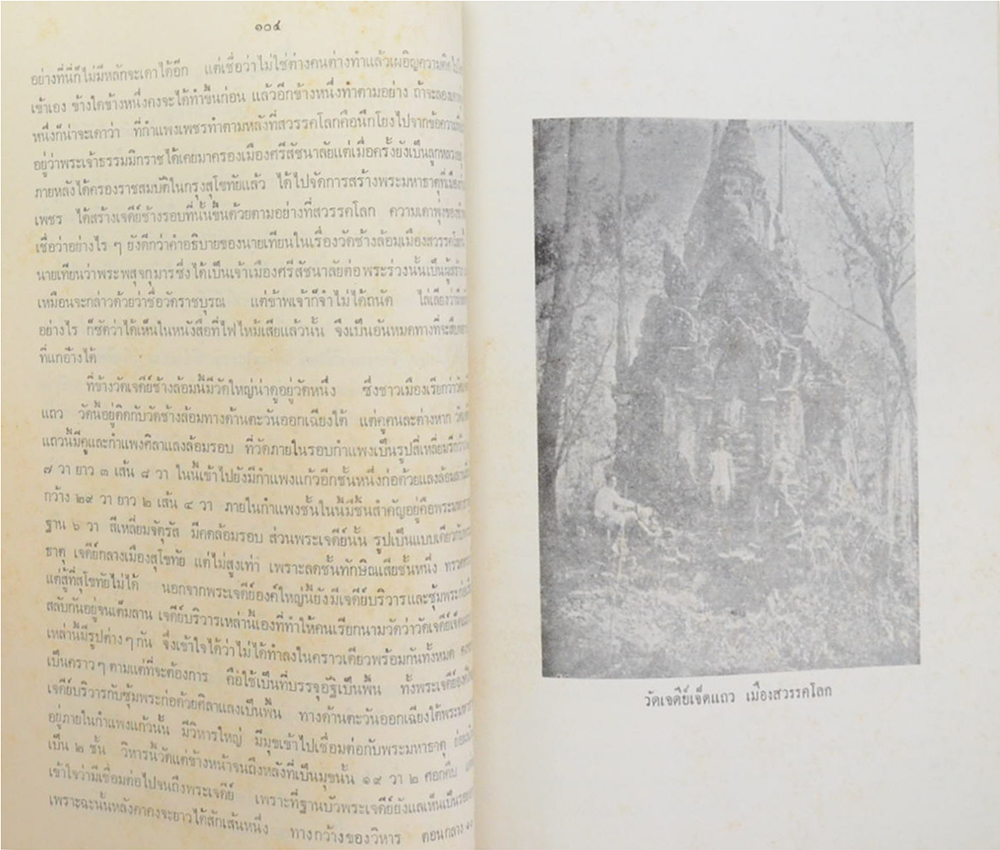 ๑๐๔
อย่างที่นี่ก็ไม่มีหลักจะเดาได้อีก แต่เชื่อว่าไม่ใช่ต่างคนต่างทำแล้วเผอิญความคิด
เข้าเอง ข้างใดข้างหนึ่งคงจะได้ทำขึ้นก่อน แล้วอีกข้างหนึ่งทำตามอย่าง ถ้าจะลอง
หนึ่งก็น่าจะเดาว่า ที่กำแพงเพชรทำตามหลังที่สวรรคโลกคือนึกโยงไปจากข้อความ
อยู่ว่าพระเจ้าธรรมมิกราชได้เคยมาครองเมืองศรีสัชนาลัยแต่เมื่อครั้งยังเป็นลูกหลวงอยู่
ภายหลังได้ครองราชสมบัติในกรุงสุโขทัยแล้ว ได้ไปจัดการสร้างพระมหาธาตุที่เมือง
เพชร ได้สร้างเจดีย์ช้างรอบที่นั้นขึ้นด้วยตามอย่างที่สวรรคโลก ความเดาพุ่งของ
เชื่อว่าอย่างไร ๆ ยังดีกว่าคำอธิบายของนายเทียนในเรื่องวัดช้างล้อมเมืองสวรรคโลก
นายเทียนว่าพระพสุจกุมารซึ่งได้เป็นเจ้าเมืองศรีสัชนาลัยต่อพระร่วงนั้นเป็นผู้สร้าง
เหมือนจะกล่าวด้วยว่าชื่อวัดราชบุรณ แต่ข้าพเจ้าก็จำไม่ได้ถนัด ไล่เลียงว่า
อย่างไร ก็ซัดว่าได้เห็นในหนังสือที่ไฟไหม้เสียแล้วนั้น จึงเป็นอันหมดทางที่จะสืบ
ที่แกอ้างได้
ที่ข้างวัดเจดีย์ช้างล้อมนี้มีวัดใหญ่น่าดูอยู่วัดหนึ่ง ซึ่งชาวเมืองเรียกว่าวัด
แถว วัดนี้อยู่ติดกับวัดช้างล้อมทางด้านตะวันออกเฉียงใต้ แต่คูคนละต่างหาก
แถวนี้มีคูและกำแพงศิลาแลงล้อมรอบ ที่วัดภายในรอบกำแพงเป็นรูปสี่เหลี่ยมรี
๗ วา ยาว ๓ เส้น ๘ วา ในนี้เข้าไปยังมีกำแพงแก้วอีกชั้นหนึ่งก่อด้วยแลงล้อมลาน
กว้าง ๒๙ วา ยาว ๒ เส้น ๔ วา ภายในกำแพงชั้นในนี้มีชิ้นสำคัญอยู่คือพระมหา
ฐาน ๖ วา สี่เหลี่ยมจัตุรัส มีคดล้อมรอบ ส่วนพระเจดีย์นั้น รูปเป็นแบบเดียวกับ
ธาตุ เจดีย์กลางเมืองสุโขทัย แต่ไม่สูงเท่า เพราะลดชั้นทักษิณเสียชั้นหนึ่ง
แต่สู้ที่สุโขทัยไม่ได้ นอกจากพระเจดีย์องค์ใหญ่นี้ยังมีเจดีย์บริวารและซุ้มพระ
สลับกันอยู่จนเต็มลาน เจดีย์บริวารเหล่านี้เองที่ทำให้คนเรียกนามวัดว่าวัดเจดีย์เจ็ด
เหล่านี้มีรูปต่าง ๆ กัน จึงเข้าใจได้ว่าไม่ได้ทำลงในคราวเดียวพร้อมกันทั้งหมด
เป็นคราว ๆ ตามแต่ที่จะต้องการ คือใช้เป็นที่บรรจุอัฐิเป็นพื้น ทั้งพระเจดีย์
เจดีย์บริวารกับซุ้มพระก่อด้วยศิลาแลงเป็นพื้น ทางด้านตะวันออกเฉียงใต้พระมหา
อยู่ภายในกำแพงแก้วนั้น มีวิหารใหญ่ มีมุขเข้าไปเชื่อมต่อกับพระมหาธาตุ
เป็น ๒ ชั้น วิหารนี้วัดแต่ข้างหน้าจนถึงหลังที่เป็นมุขนั้น ๑๙ วา ๒ ศอกคืบ
เข้าใจว่ามีเชื่อมต่อไปจนถึงพระเจดีย์ เพราะที่ฐานบัวพระเจดีย์ยังแลเห็นเป็น
เพราะฉะนั้นหลังคาคงจะยาวได้สักเส้นหนึ่ง ทางกว้างของวิหาร ตอนกลาง
วัดเจดีย์เจ็ดแถว เมืองสวรรคโลก